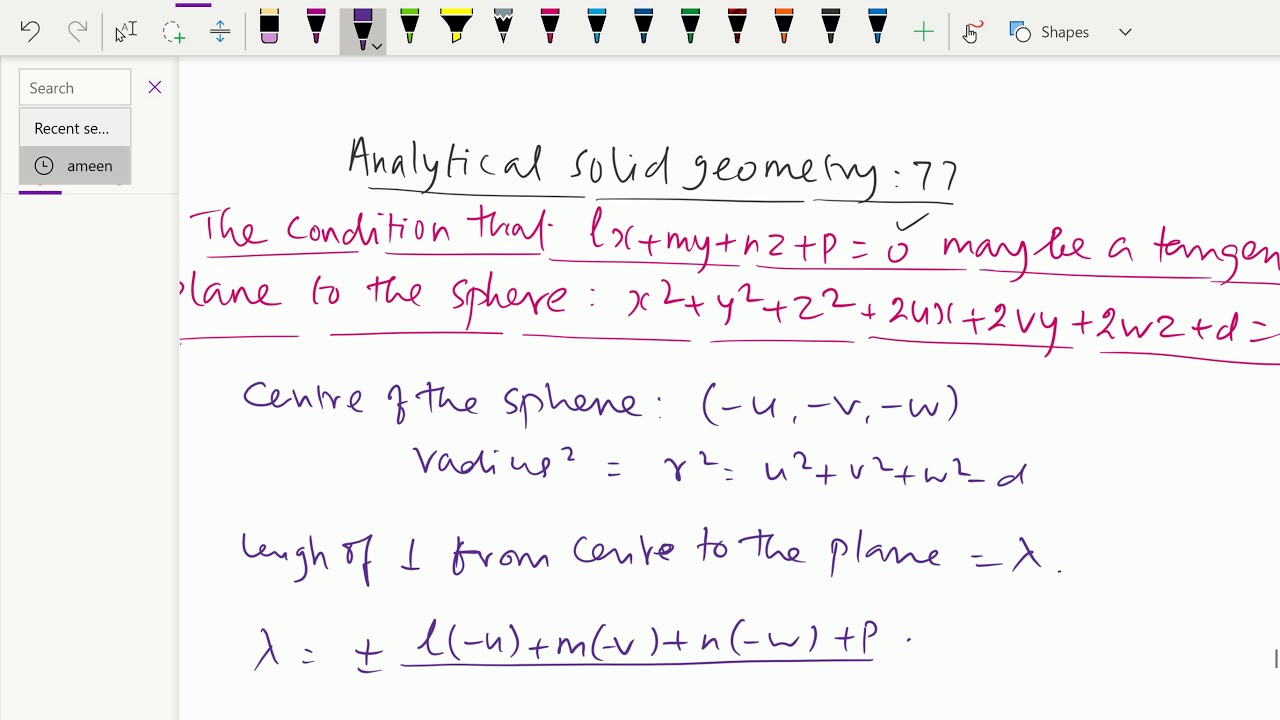 Shapes
Search
Recent se...
ameen
Analytical solid geometry: 77
The condition that lx+my+nz+p=0 may be a tangen
plane to the sphere: x²+y²+z²+2ux+2vy+2wz+d=
Centre of the sphere: (-u, -v, -w)
radius² = r² = u²+v²+w²-d
lengh of ⊥ from centre to the plane = λ.
λ = ± l(-u)+m(-v)+n(-w)+p